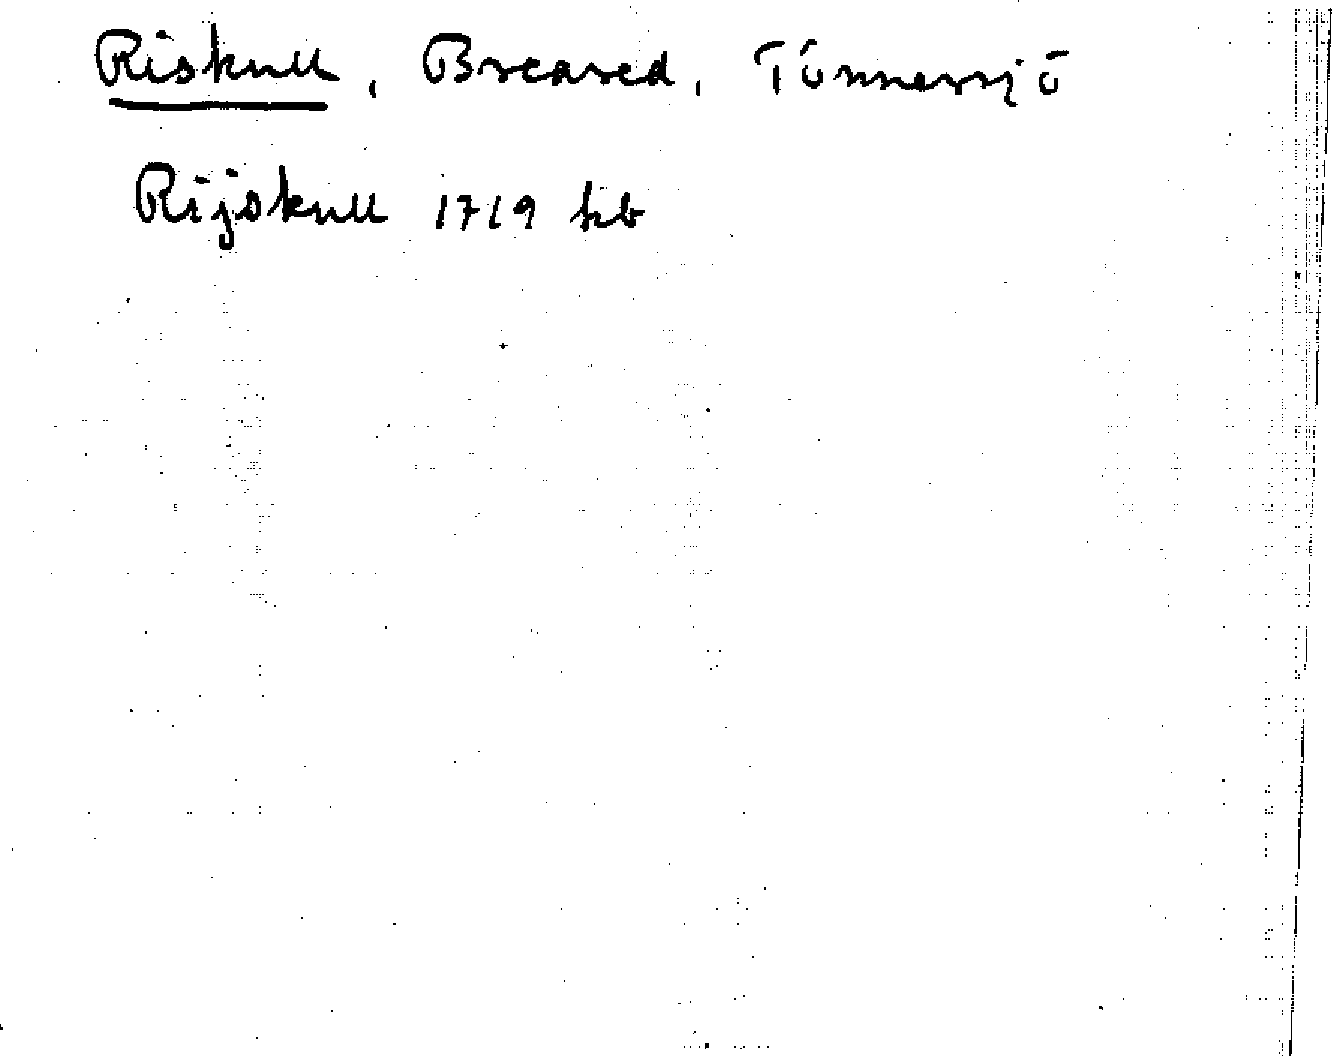 Riskull, Breared, Tönnersjö
Rijskull 1719 kb